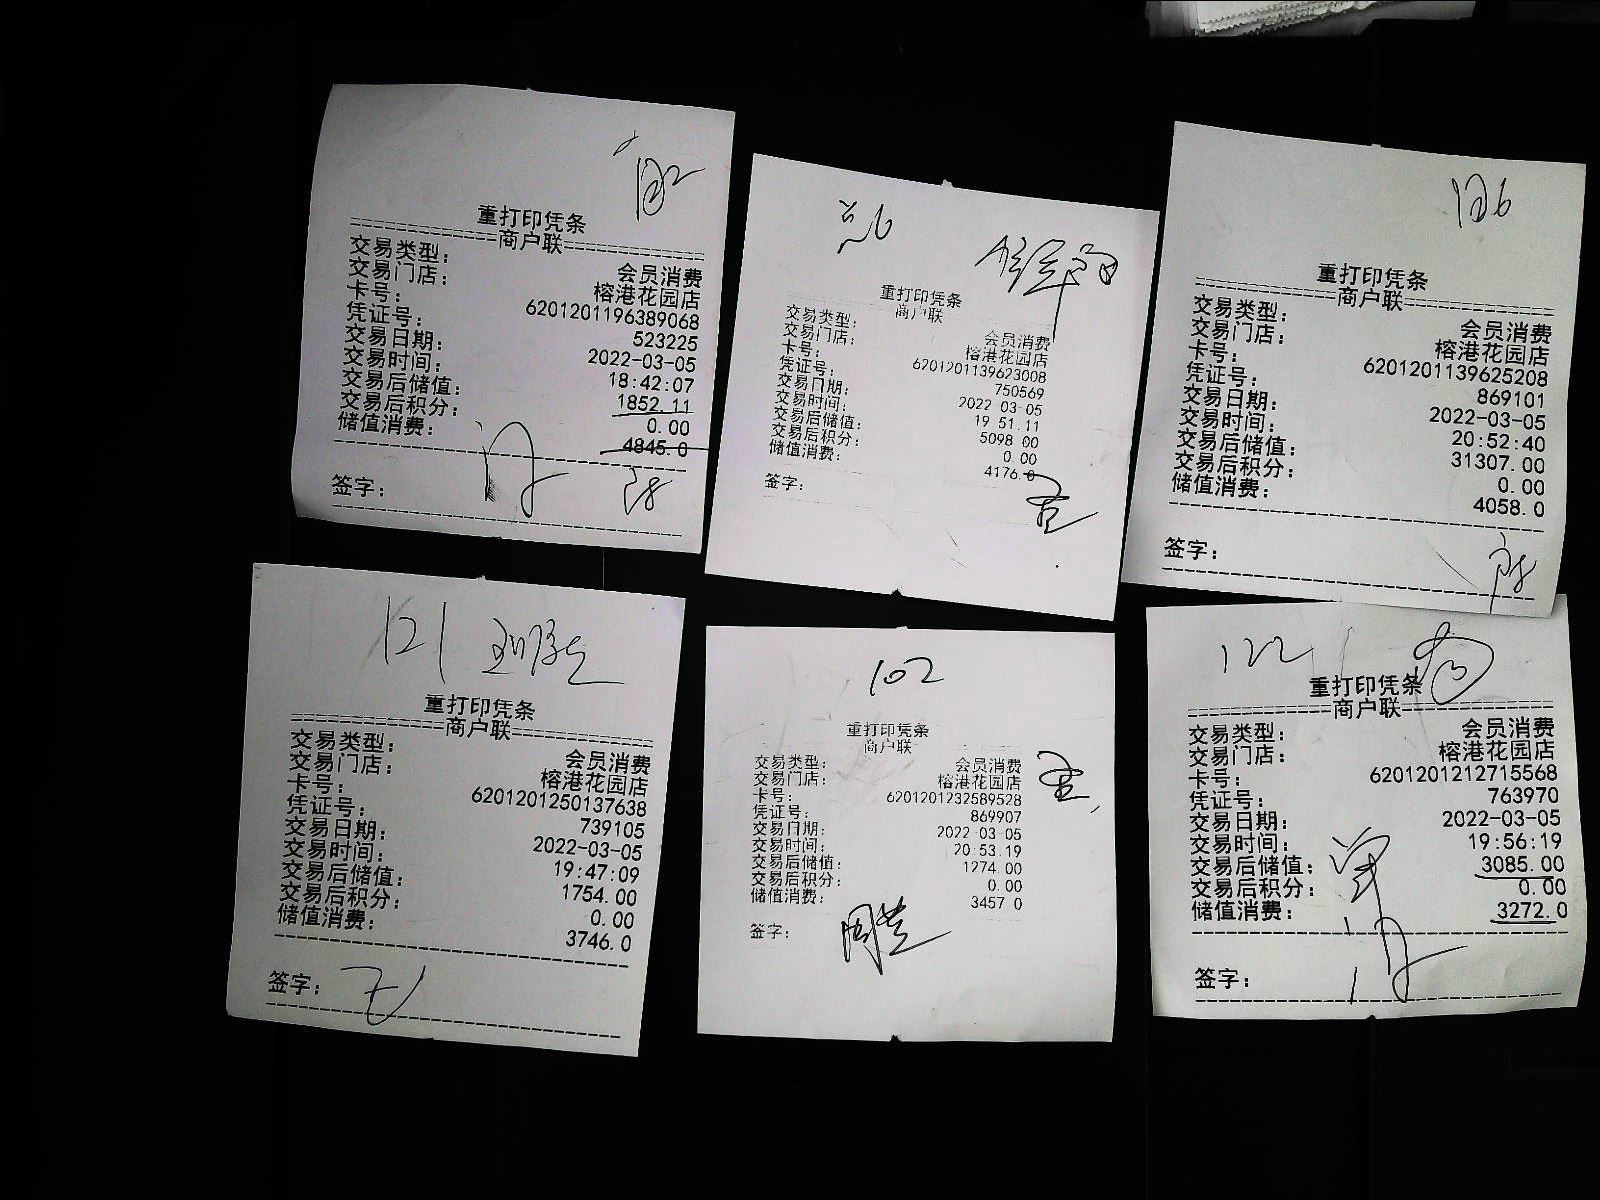 重打印凭条
商户联
交易类型： 会员消费
交易门店： 榕港花园店
卡号： 6201201196389068
凭证号： 523225
交易日期： 2022-03-05
交易时间： 18:42:07
交易后储值： 1852.11
交易后积分： 0.00
储值消费： 4845.0
签字：
重打印凭条
商户联
交易类型： 会员消费
交易门店： 榕港花园店
卡号： 6201201139623008
凭证号： 750569
交易日期： 2022 03 05
交易时间： 19 51.11
交易后储值： 5098 00
交易后积分： 0.00
储值消费： 4176.0
签字：
126
重打印凭条
商户联
交易类型： 会员消费
交易门店： 榕港花园店
卡号： 6201201139625208
凭证号： 869101
交易日期： 2022-03-05
交易时间： 20:52:40
交易后储值： 31307.00
交易后积分： 0.00
储值消费： 4058.0
签字：
121
重打印凭条
商户联
交易类型： 会员消费
交易门店： 榕港花园店
卡号： 6201201250137638
凭证号： 739105
交易日期： 2022-03-05
交易时间： 19:47:09
交易后储值： 1754.00
交易后积分： 0.00
储值消费： 3746.0
签字：
102
重打印凭条
商户联
交易类型： 会员消费
交易门店： 榕港花园店
卡号： 6201201232589528
凭证号： 869907
交易日期： 2022-03-05
交易时间： 20:53.19
交易后储值： 1274.00
交易后积分： 0.00
储值消费： 3457 0
签字：
122
重打印凭条
商户联
交易类型： 会员消费
交易门店： 榕港花园店
卡号： 6201201212715568
凭证号： 763970
交易日期： 2022-03-05
交易时间： 19:56:19
交易后储值： 3085.00
交易后积分： 0.00
储值消费： 3272.0
签字：